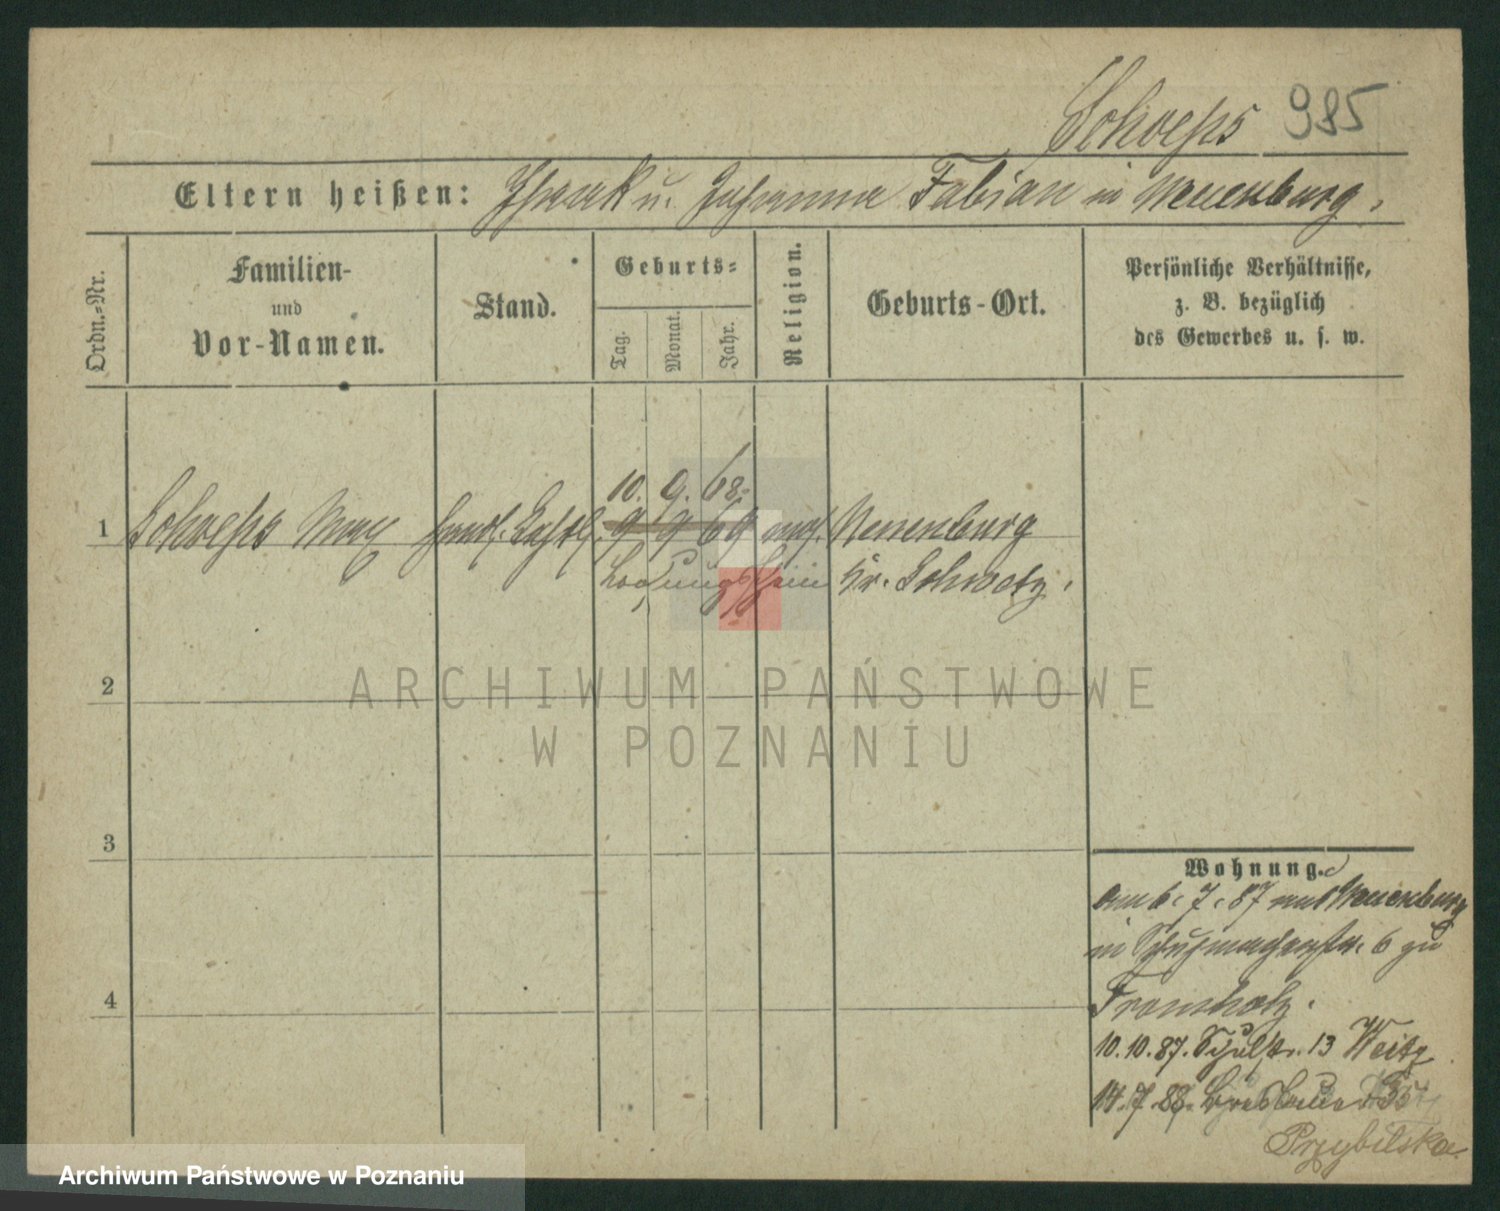 Schoeps 985
Eltern heißen: Isaak u. Johanna Fabian in Neuenburg.
Ordn.-Nr.
Familien-
und
Vor-Namen.
Stand.
Geburts-
Tag.
Monat.
Jahr.
Religion.
Geburts-Ort.
Persönliche Verhältnisse,
z. B. bezüglich
des Gewerbes u. s. w.
10. 9. 68.
1 Schoeps Max 9 9 69 mos. Neuenburg
Losungsschein Kr. Schwetz.
2
3
4
Wohnung.
Am 6. 7. 87 aus Neuenburg
in Schuhmacherstr. 6 zu
Fromholz.
10.10.87. Schulstr. 13 Weitz
14.7.88. Breslauer 35
Przybilska
ARCHIWUM PAŃSTWOWE
W POZNANIU
Archiwum Państwowe w Poznaniu